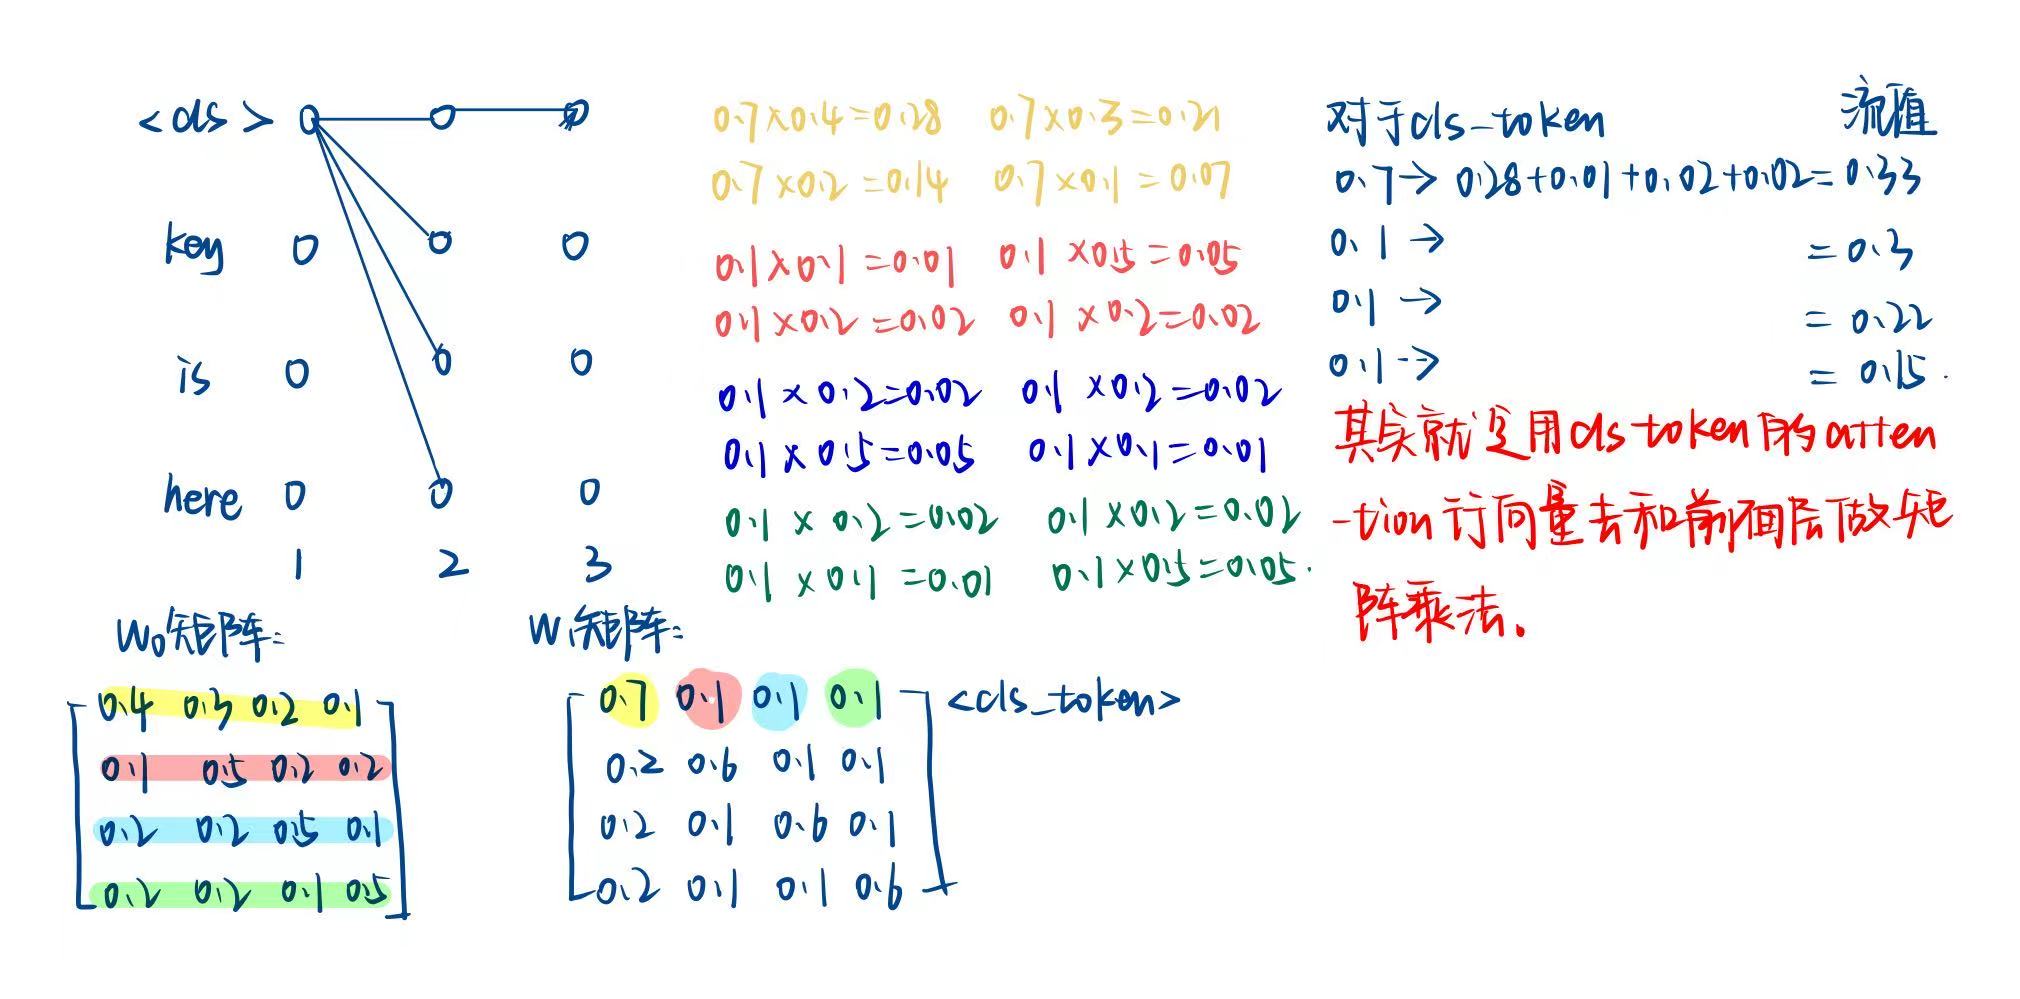 <cls>
key
is
here
1 2 3
0.7×0.4=0.28 0.7×0.3=0.21
0.7×0.2=0.14 0.7×0.1=0.07
0.1×0.1=0.01 0.1×0.5=0.05
0.1×0.2=0.02 0.1×0.2=0.02
0.1×0.2=0.02 0.1×0.2=0.02
0.1×0.5=0.05 0.1×0.1=0.01
0.1×0.2=0.02 0.1×0.2=0.02
0.1×0.1=0.01 0.1×0.5=0.05.
对于cls-token 流值
0.7→0.28+0.01+0.02+0.02=0.33
0.1→ =0.3
0.1→ =0.22
0.1→ =0.15.
其实就是用cls token的atten
-tion行向量去和前面层做矩
阵乘法.
W₀矩阵:
0.4 0.3 0.2 0.1
0.1 0.5 0.2 0.2
0.2 0.2 0.5 0.1
0.2 0.2 0.1 0.5
W₁矩阵:
0.7 0.1 0.1 0.1 <cls_token>
0.2 0.6 0.1 0.1
0.2 0.1 0.6 0.1
0.2 0.1 0.1 0.6